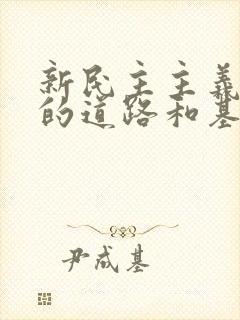 新民主主義
的道路和基
尹成基